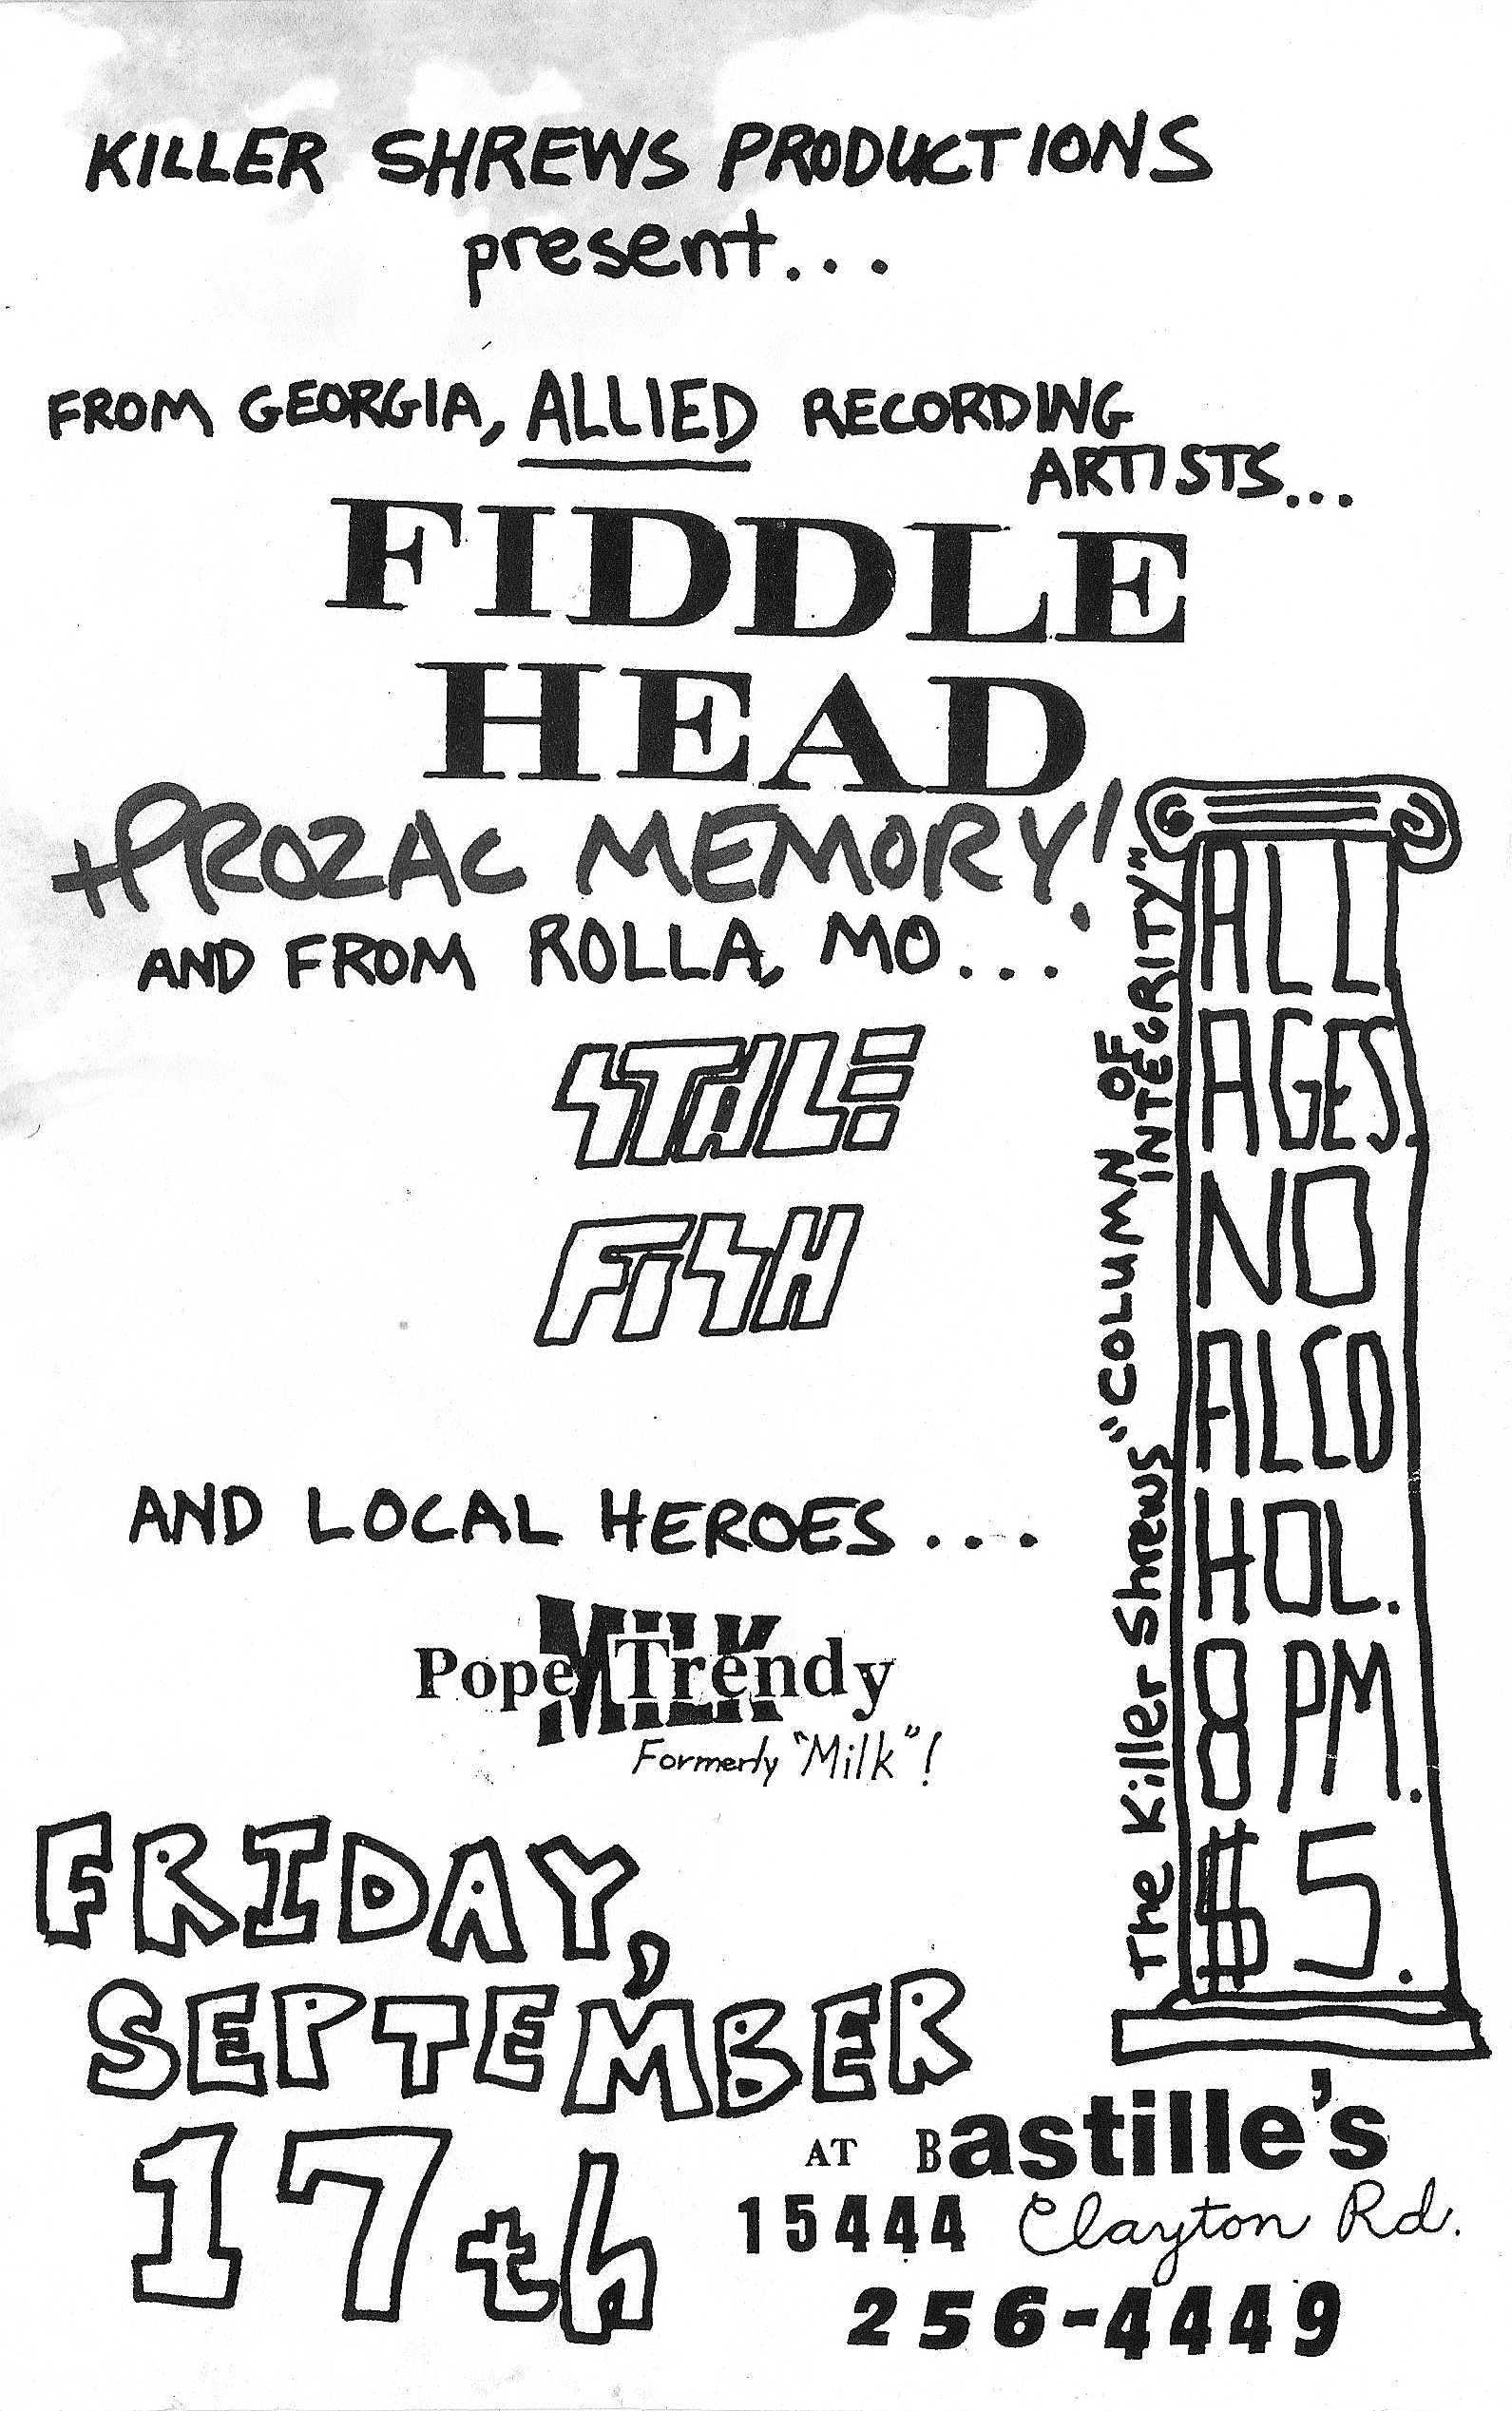 KILLER SHREWS PRODUCTIONS
present...
FROM GEORGIA, ALLIED RECORDING
ARTISTS...
FIDDLE
HEAD
+PROZAC MEMORY!
AND FROM ROLLA, MO...
STALE
FISH
AND LOCAL HEROES...
MILK
Pope Trendy
Formerly "Milk"!
FRIDAY,
SEPTEMBER
17th
The Killer Shrews "COLUMN OF
INTEGRITY"
ALL
AGES.
NO
ALCO
HOL.
8 PM.
$5.
AT Bastille's
15444 Clayton Rd.
256-4449